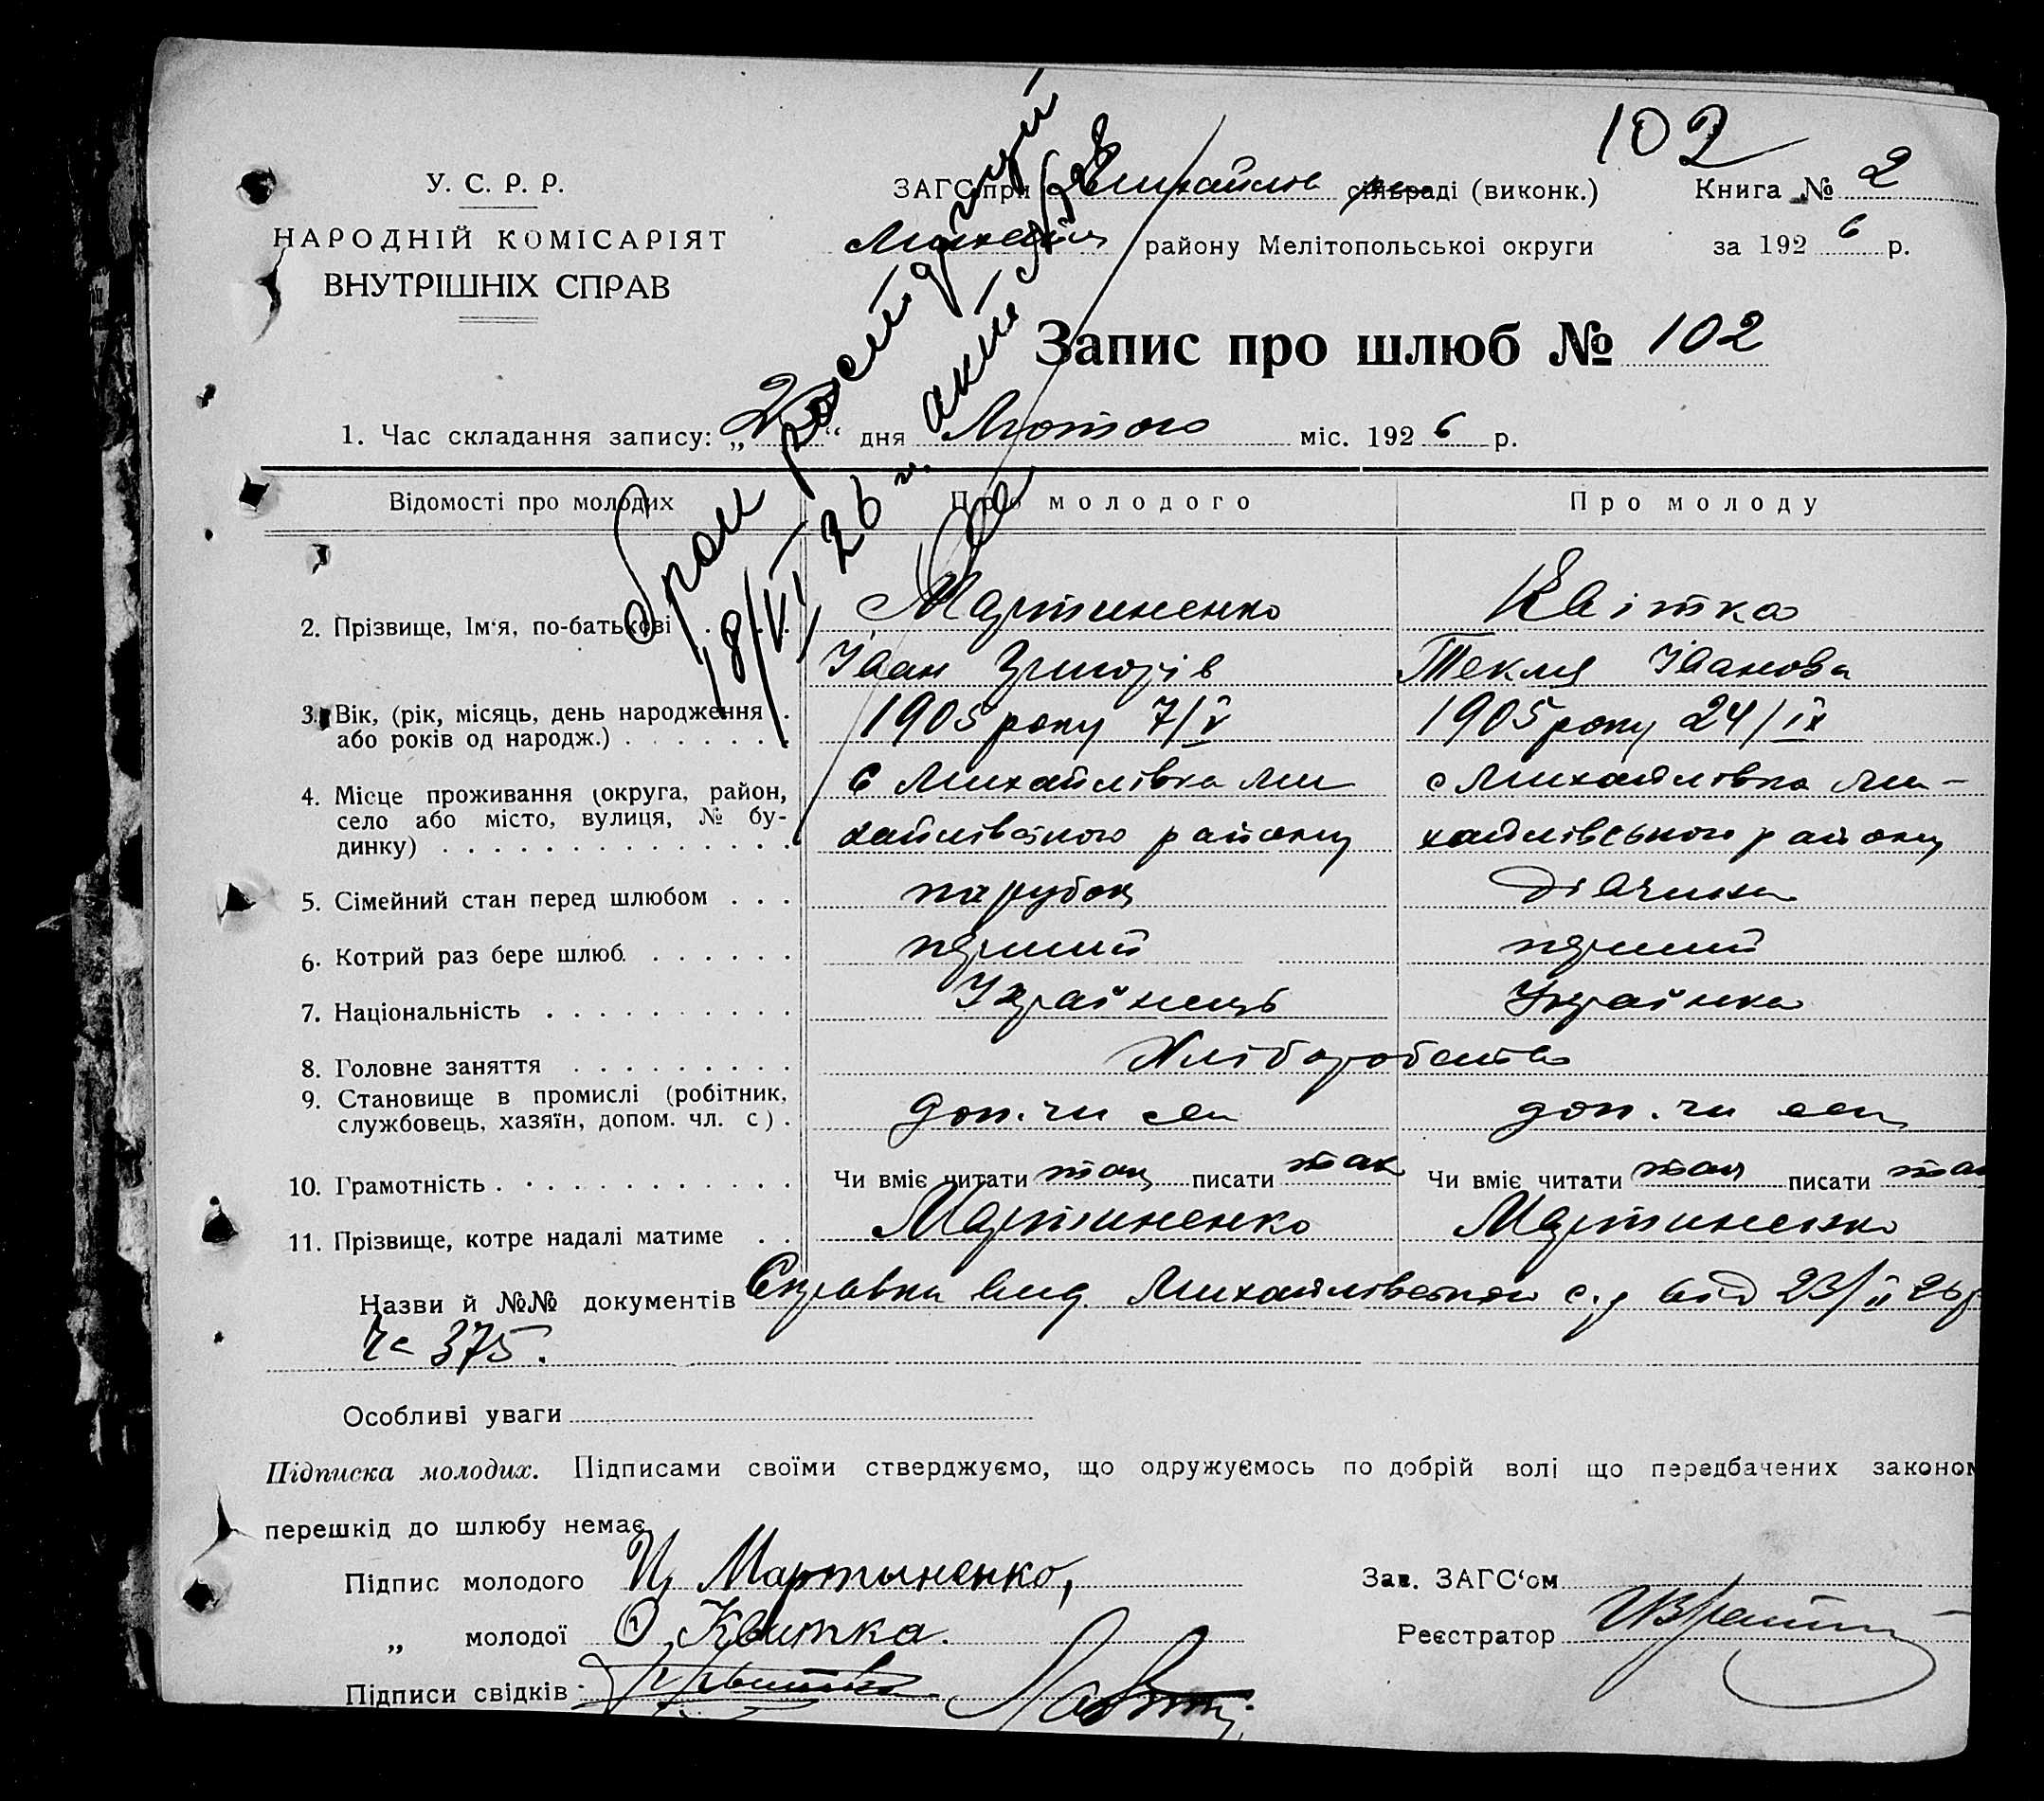 102
У. С. Р. Р.
НАРОДНІЙ КОМІСАРІЯТ
ВНУТРІШНІХ СПРАВ
ЗАГС при Михайлов сільраді (виконк.)
Книга № 2
району Мелітопольської округи
за 1926 р.
Запис про шлюб № 102
1. Час складання запису: „ “ дня Лютого міс. 1926 р.
18/VI 26 г.
Відомості про молодих
Про молодого
Про молоду
2. Прізвище, Ім'я, по-батькові
Мартиненко
Квітка
Іван Григорів
Текля Іванова
3. Вік, (рік, місяць, день народження або років од народж.)
1905 року 7/V
1905 року 24/IX
4. Місце проживання (округа, район, село або місто, вулиця, № будинку)
с Михайлівка Ми
хайлівського району
с Михайлівка Ми-
хайлівського району
5. Сімейний стан перед шлюбом
парубок
дівчина
6. Котрий раз бере шлюб
перший
перший
7. Національність
Українець
Українка
8. Головне заняття
Хліборобство
9. Становище в промислі (робітник, службовець, хазяїн, допом. чл. с)
доп. чл сем
доп. чл сем
10. Грамотність
Чи вміє читати так писати так
Чи вміє читати так писати так
11. Прізвище, котре надалі матиме
Мартиненко
Мартиненко
Назви й №№ документів Справка вид. Михайлівською с.р від 23/II 26р
Чс 375.
Особливі уваги
Підписка молодих. Підписами своїми стверджуємо, що одружуємось по добрій волі що передбачених законом
перешкід до шлюбу немає
Підпис молодого И, Мартыненко,
Зав. ЗАГС'ом
„ молодої Ф, Квитка.
Реєстратор
Підписи свідків